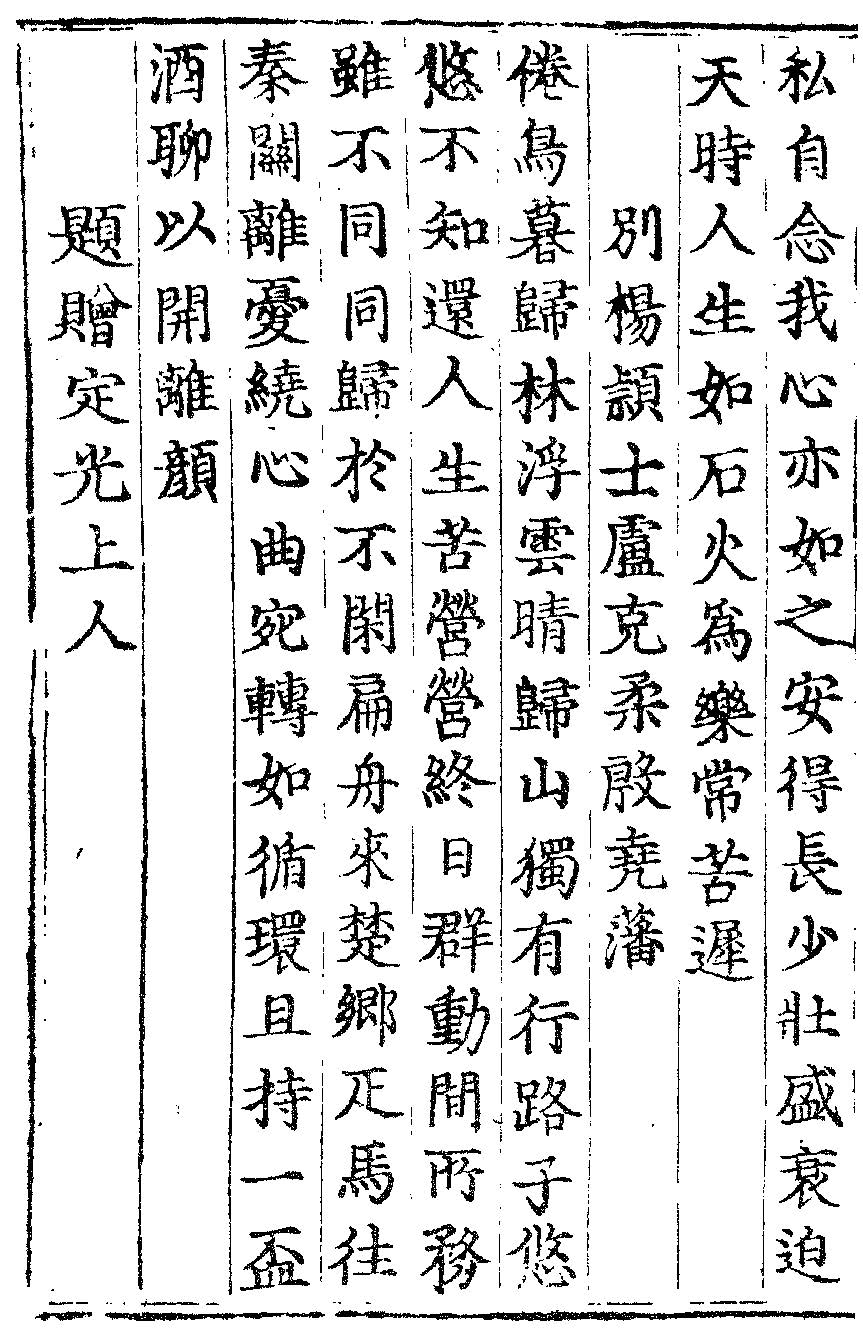 私自念我心亦如之安得長少壯盛衰迫
天時人生如石火為樂常苦遲
別楊頴士盧克柔殷堯藩
倦鳥暮歸林浮雲晴歸山獨有行路子悠
悠不知還人生苦營營終日群動間所務
雖不同同歸於不閑扁舟來楚鄉疋馬往
秦關離憂繞心曲宛轉如循環且持一盃
酒聊以開離顏
題贈定光上人